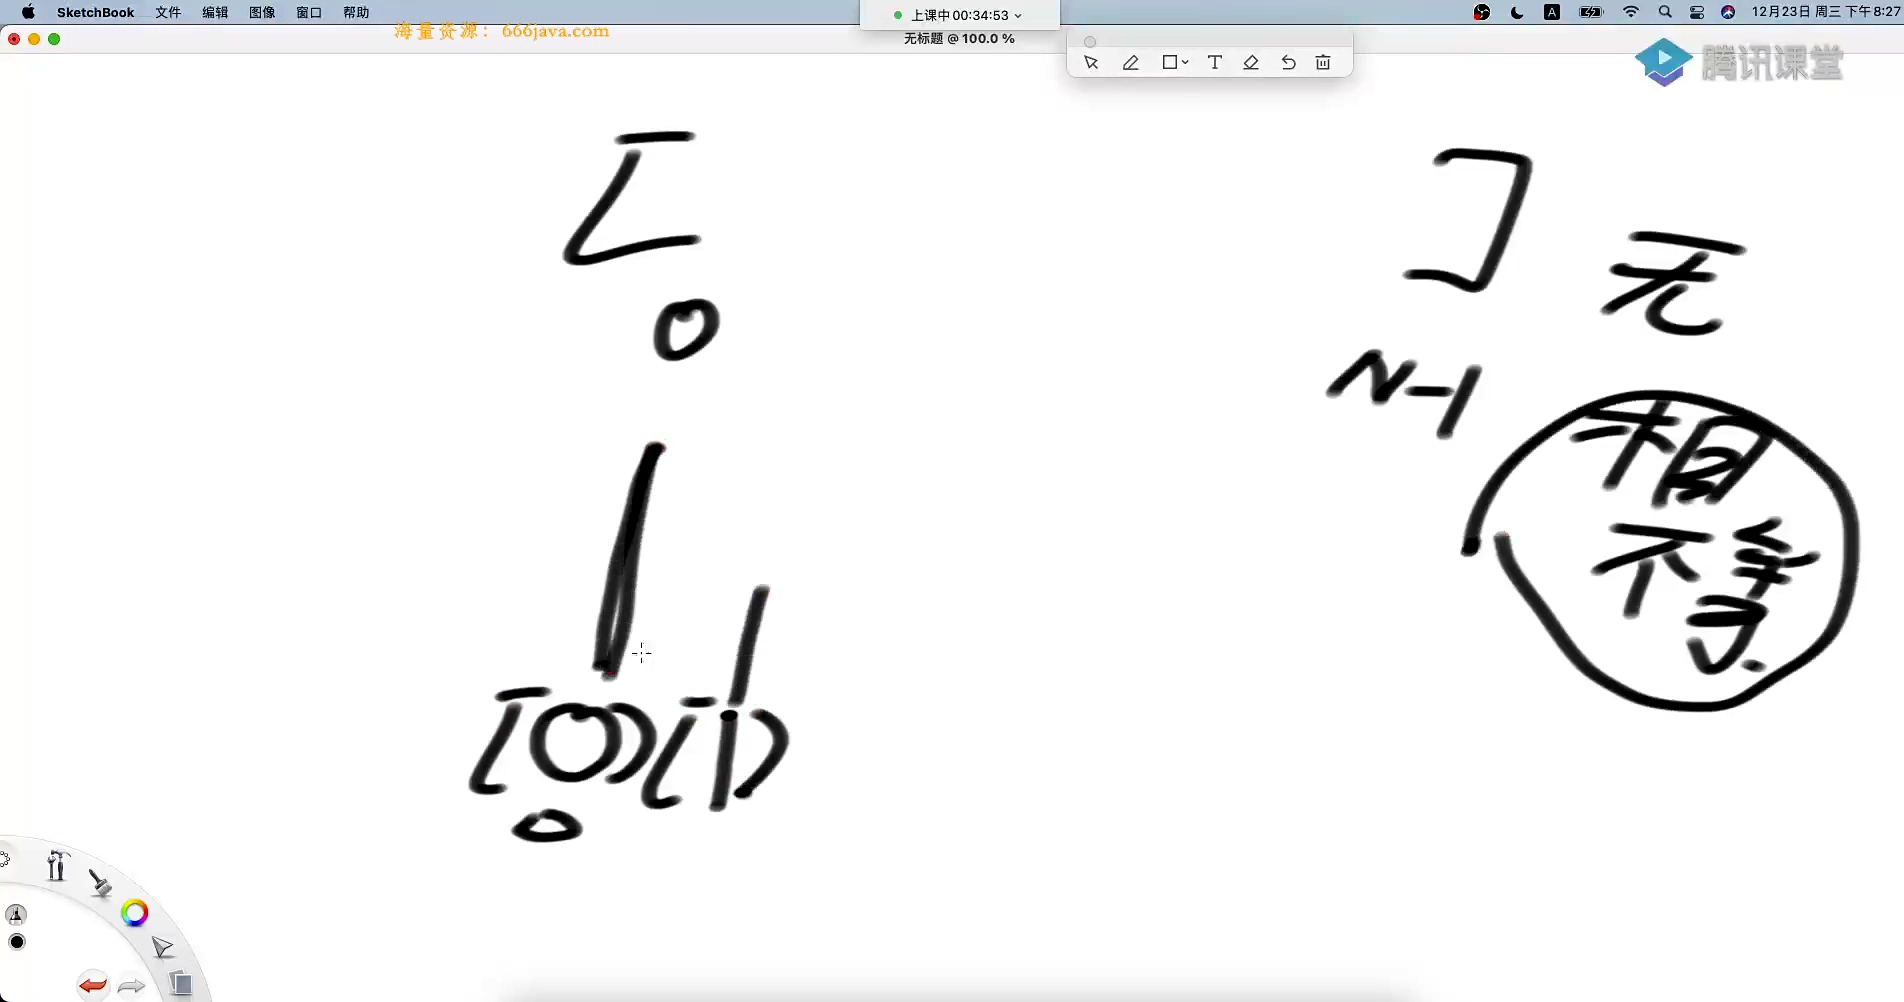 SketchBook 文件 编辑 图像 窗口 帮助
上课中00:34:53
A
12月23日 周三 下午8:27
海量资源：666java.com
无标题 @ 100.0 %
T
腾讯课堂
[ ] 无
0 N-1
相
不等
[0)[1)
0